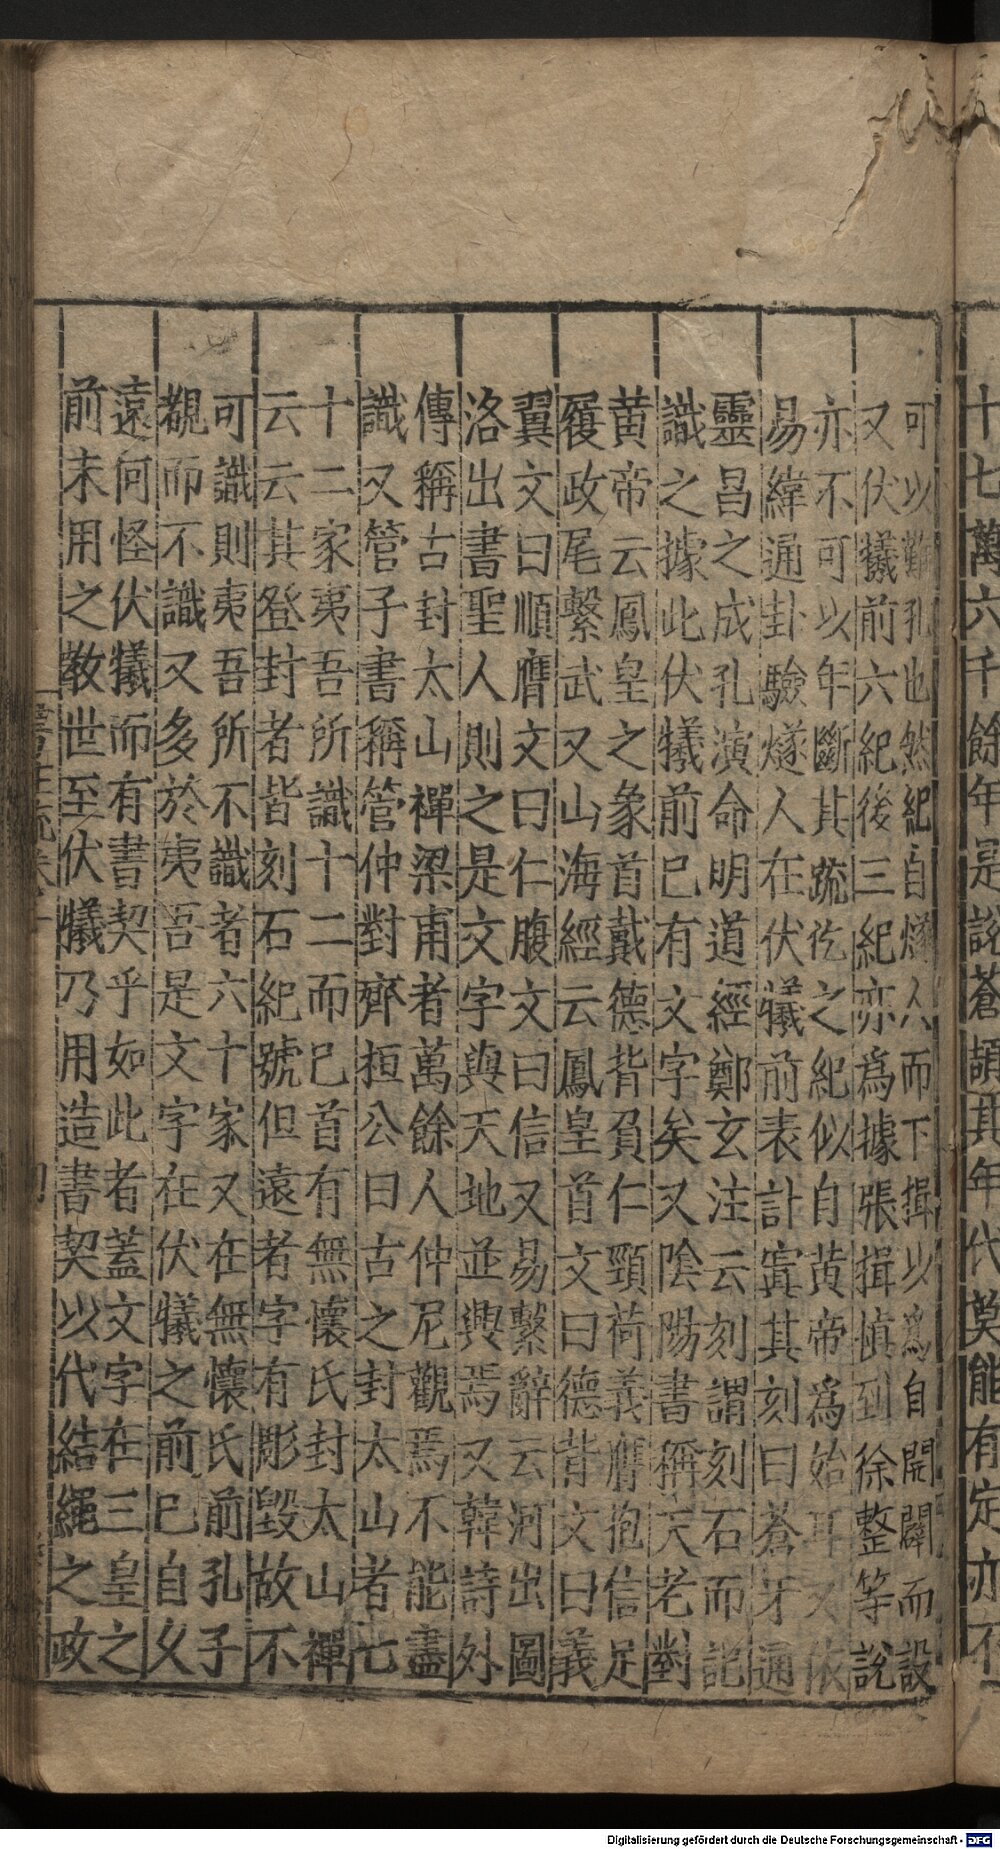 十七萬六千餘年是說蒼頡其年代莫能有定亦不
可以難孔也然紀自燧人而下揖以為自開闢而設
又伏犧前六紀後三紀亦為據張揖慎到徐整等說
亦不可以年斷其䟽仡之紀似自黃帝為始耳又依
易緯通卦驗燧人在伏犧前表計寘其刻曰蒼牙通
靈昌之成孔演命明道經鄭玄注云刻謂刻石而記
識之據此伏犧前已有文字矣又陰陽書稱天老對
黃帝云鳳皇之象首戴德背負仁頸荷義膺抱信足
履政尾繫武又山海經云鳳皇首文曰德背文曰義
翼文曰順膺文曰仁腹文曰信又易繫辭云河出圖
洛出書聖人則之是文字與天地並興焉又韓詩外
傳稱古封太山禪梁甫者萬餘人仲尼觀焉不能盡
識又管子書稱管仲對齊桓公曰古之封太山者七
十二家夷吾所識十二而已首有無懷氏封太山禪
云云其登封者皆刻石紀號但遠者字有彫毀故不
可識則夷吾所不識者六十家又在無懷氏前孔子
覩而不識又多於夷吾是文字在伏犧之前已自久
遠何怪伏犧而有書契乎如此者蓋文字在三皇之
前未用之教世至伏犧乃用造書契以代結繩之政
Digitalisierung gefördert durch die Deutsche Forschungsgemeinschaft - DFG